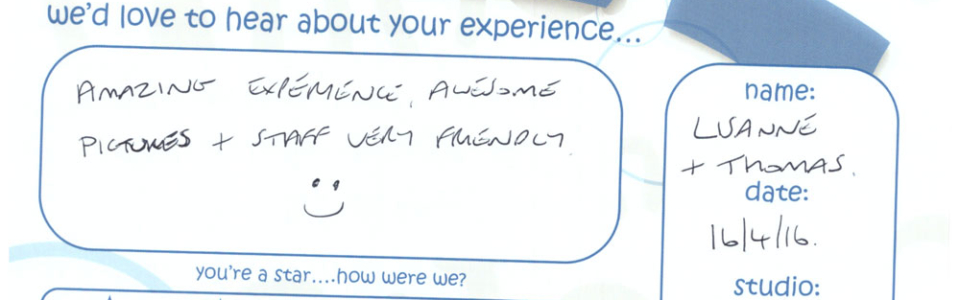 we'd love to hear about your experience...
AMAZING EXPERIENCE, AWESOME
PICTURES + STAFF VERY FRIENDLY
name:
LUANNE
+ THOMAS.
date:
16/4/16.
studio:
you're a star....how were we?